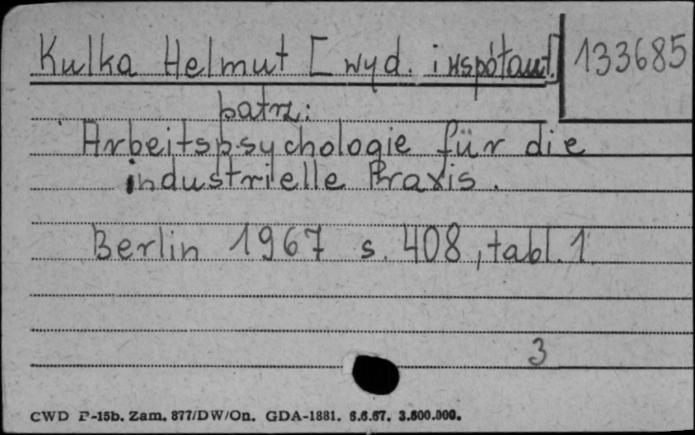 Kulka Helmut [wyd. i współaut.] 133685
patrz:
Arbeitspsychologie für die
industrielle Praxis.
Berlin 1967 s. 408, tabl. 1
3
CWD P-15b. Zam. 877/DW/On. GDA-1881. 6.6.67. 3.800.000.